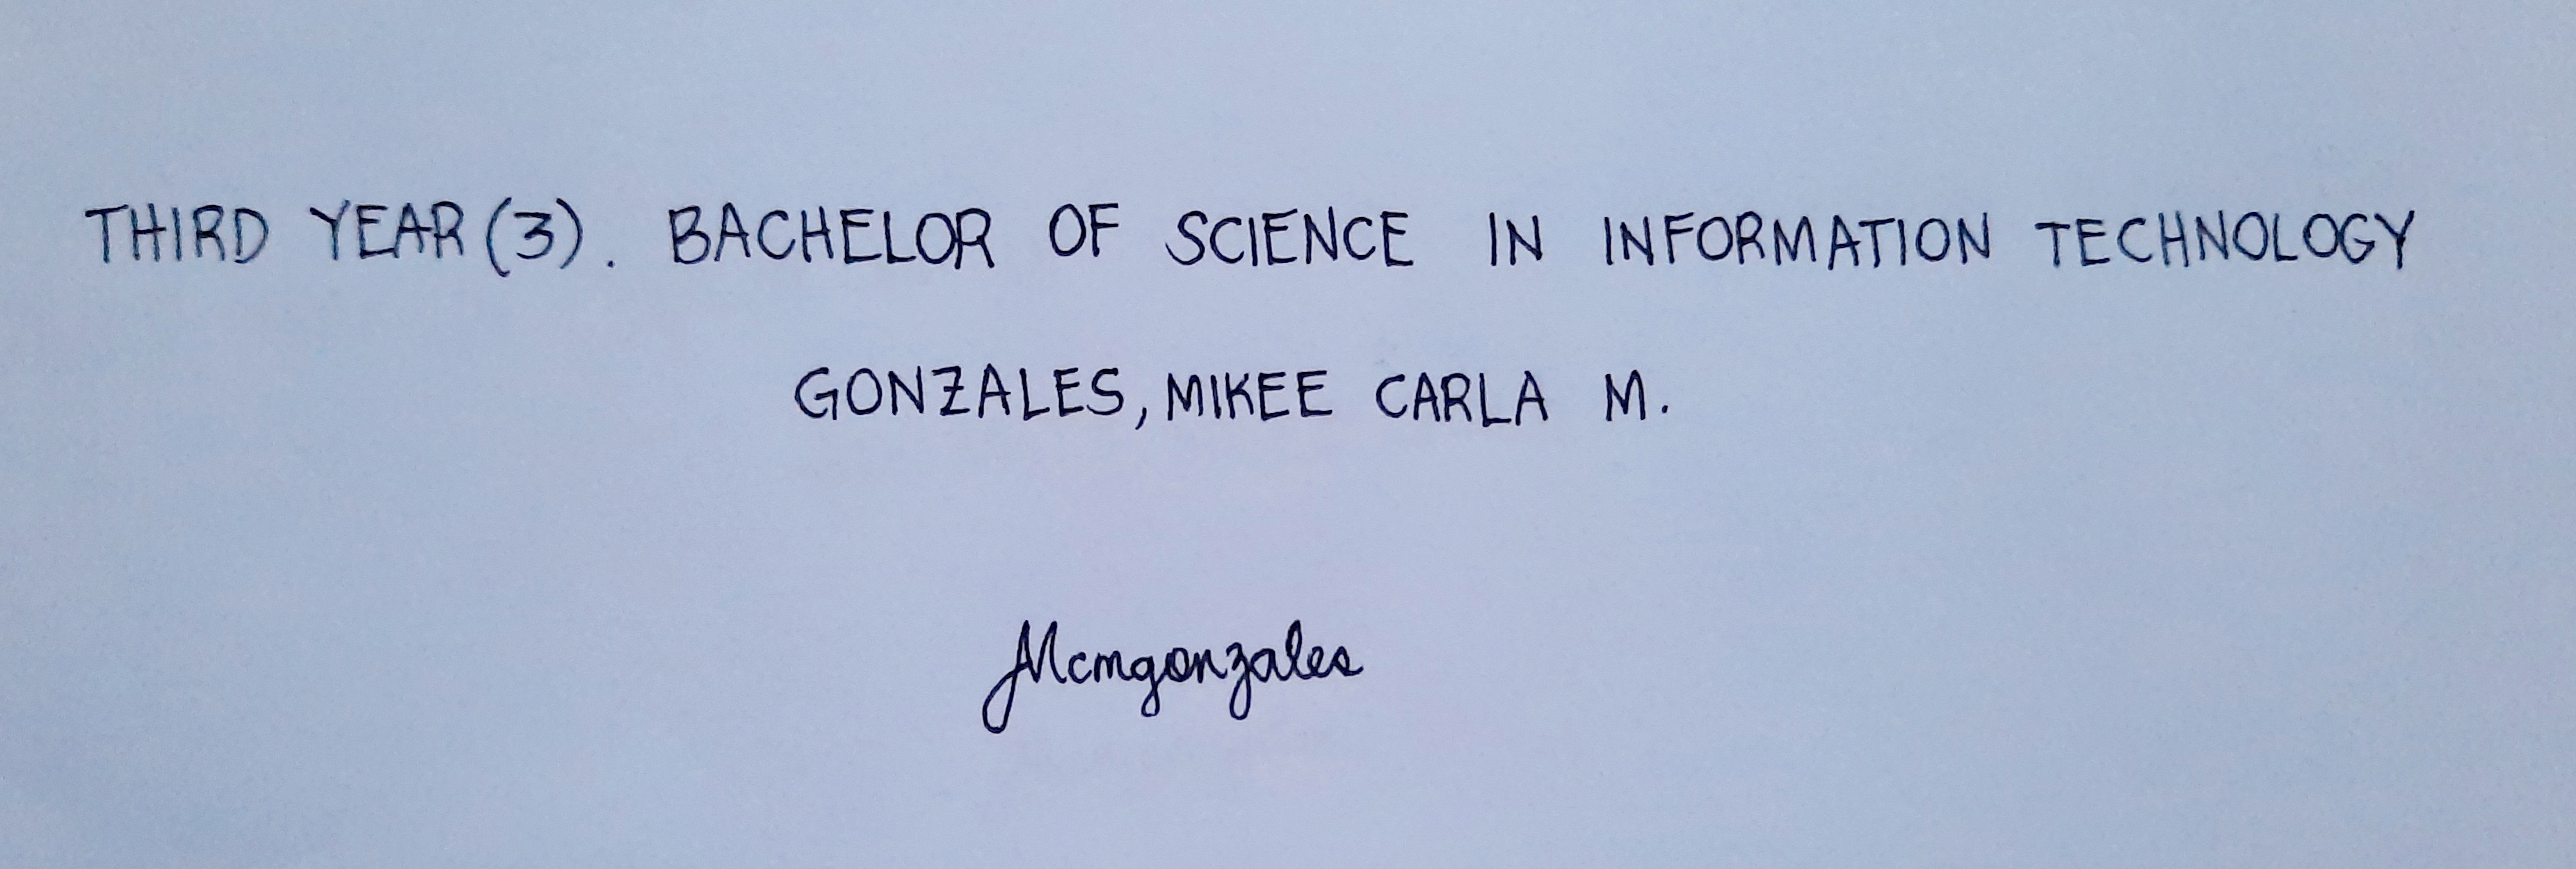 THIRD YEAR (3). BACHELOR OF SCIENCE IN INFORMATION TECHNOLOGY
GONZALES, MIKEE CARLA M.
Mcmgonzales